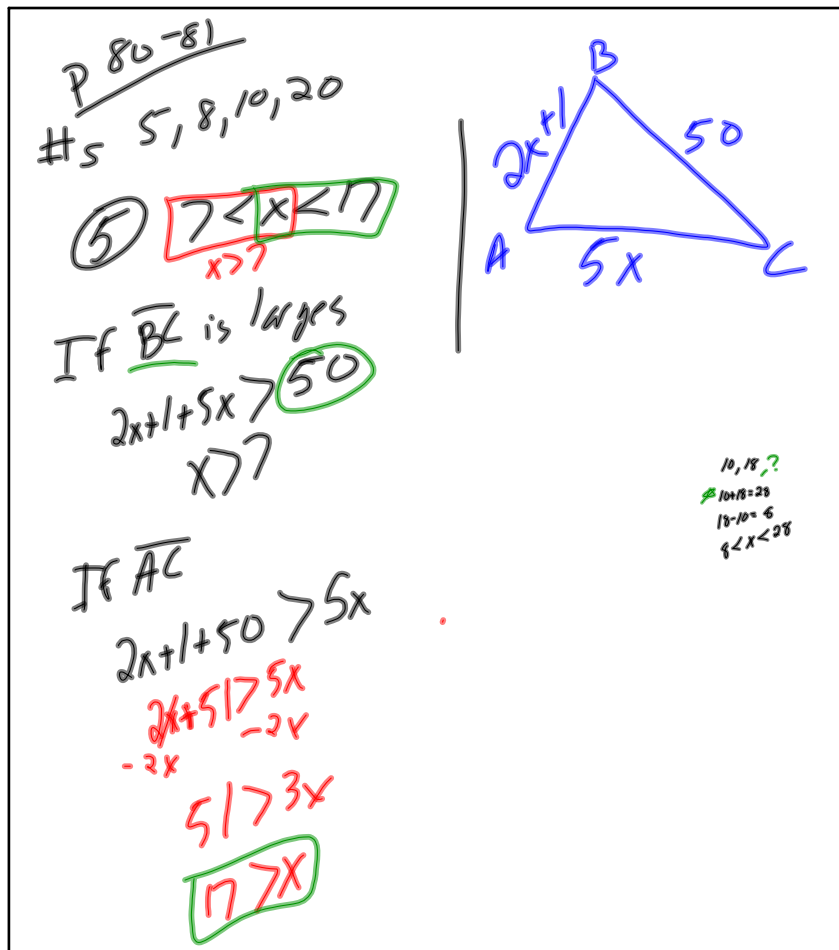 P 80-81
#s 5, 8, 10, 20
5 7<x<17
x>7
If BC is larges
2x+1+5x > 50
x>7
If AC
2x+1+50 > 5x
2x+51>5x
-2x -2x
51>3x
17>x
B
2x+1 50
A 5x C
10, 18, ?
10+18=28
18-10= 8
8<x<28